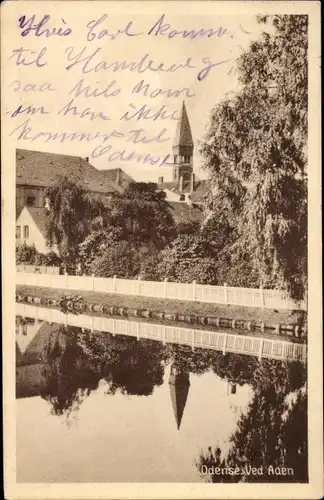 Hvis Carl kommer
til Hamborg
saa hils ham
om han ikke
kommer til
Odense
Odense. Ved Aaen